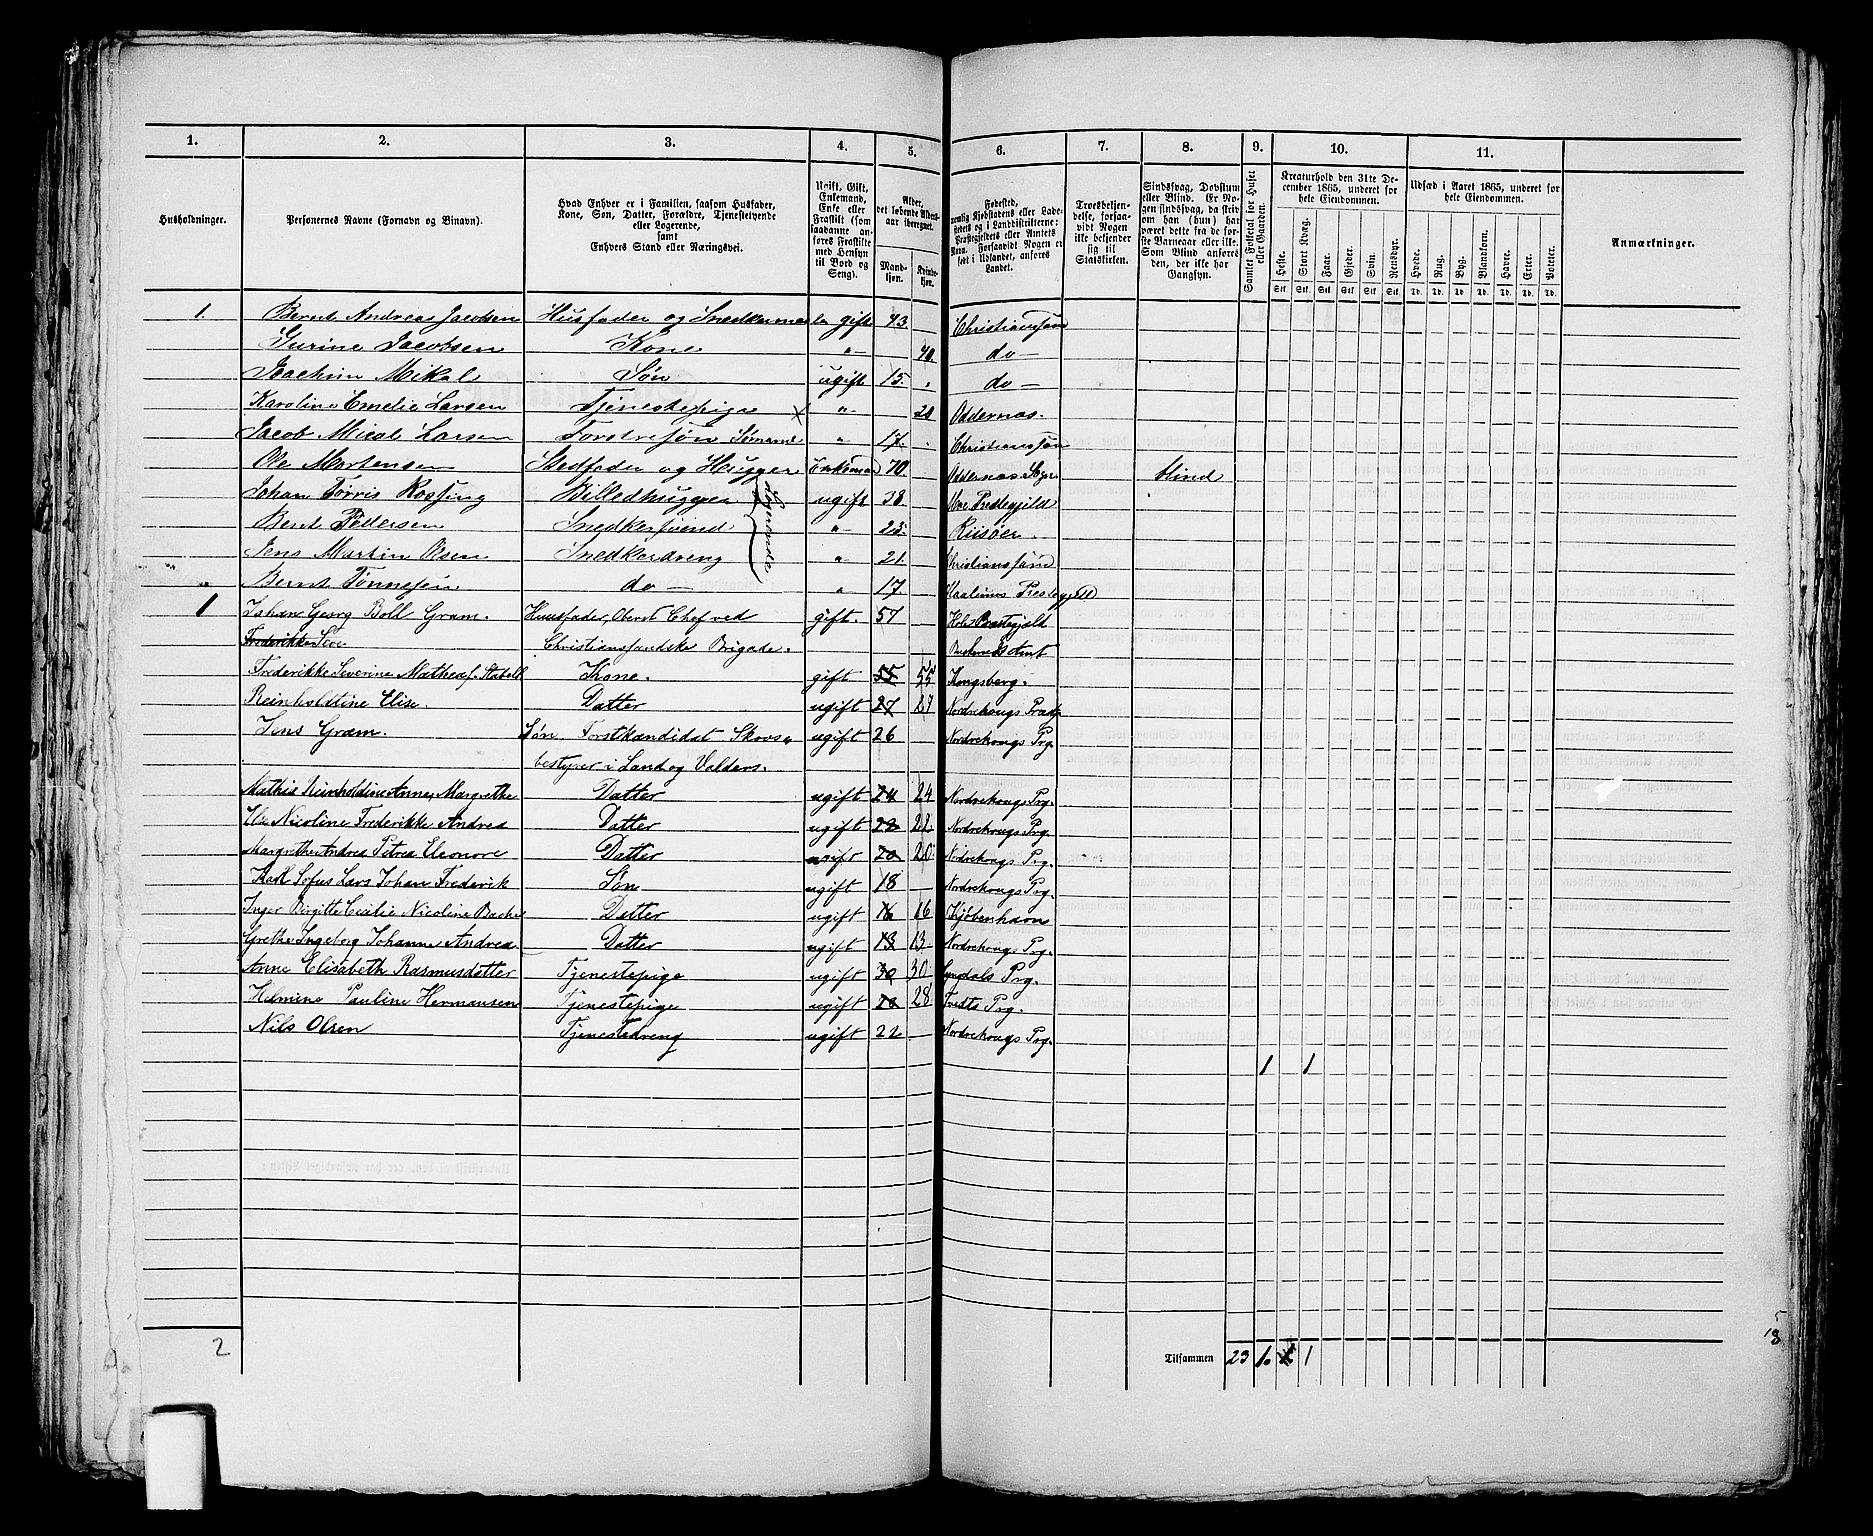 1. 2. 3. 4. 5. 6. 7. 8. 9. 10. 11.
Husholdninger.
Personernes Navne (Fornavn og Binavn).
Hvad Enhver er i Familien, saasom Husfader,
Kone, Søn, Datter, Forældre, Tjenestetyende
eller Logerende,
samt
Enhvers Stand eller Næringsvei.
Ugift, Gift,
Enkemand,
Enke eller
Fraskilt (som
saadanne an-
føres Fraskilte
med Hensyn
til Bord og
Seng).
Alder,
det løbende Alders-
aar iberegnet.
Mand-
kjøn.
Kvinde-
kjøn.
Fødested,
nemlig Kjøbstadens eller Lade-
stedets og i Landdistrikterne:
Præstegjeldets eller Amtets
Navn. Forsaavidt Nogen er
født i Udlandet, anføres
Landet.
Troesbekjen-
delse, forsaa-
vidt Nogen
ikke bekjender
sig til
Statskirken.
Sindssvag, Døvstum
eller Blind. Er No-
gen sindssvag, da skriv
om han (hun) har
været dette fra de før-
ste Barneaar eller ikke.
Som Blind anføres
den, der ikke har
Gangsyn.
Samlet Folketal for Huset
eller Gaarden.
Kreaturhold den 31te De-
cember 1865, underet for
hele Eiendommen.
Heste. Stort Kvæg. Faar. Gjeder. Svin. Rensdyr.
Stk. Stk. Stk. Stk. Stk. Stk.
Udsæd i Aaret 1865, underet for
hele Eiendommen.
Hvede. Rug. Byg. Blandkorn. Havre. Erter. Poteter.
Td. Td. Td. Td. Td. Td. Td.
Anmærkninger.
1. Bernt Andreas Jacobsen Husfader og Snedkermester gift 43. Christianssand
Gurine Jacobsen Kone " 40. do
Joachim Mikal Søn ugift 15. do
Karoline Emelie Larsen Tjenestepige x " 20 Oddernas.
Jacob Mical Larsen Fostersøn Sømand " 17. Christianssand
Ole Mortensen Stedfader og Hugger Enkemand 70. Oddernas blind
Johan Torris Rossing Billedhugger ugift 38.
Bernt Pedersen Snedkersvend " 23. Riisøer.
Jens Martin Olsen Snedkerdreng " 21. Christianssand
Bernt Tønnesen do " 17
Logerende
1 Johan Georg Boll Gram. Huusfader, Oberst Chef ved gift. 57 Hole Præstegjeld
Frederikke Seve Christianssandske Brigade. Buskeruds Amt
Frederikke Severine Mathea f. Stabell Kone. gift 55 55 Kongsberg.
Reinholdtine Elise. Datter ugift 27 27 Nordrehougs Præstg
Jens Gram. Søn. Forstkandidat Skovs- ugift 26 Nordrehougs Prg.
bestyrer i Land og Valders.
Mathia Reinholdine Anne, Margrethe Datter ugift 24 24 Nordrehougs Prg.
Nicoline Frederikke Andrea Datter ugift 22 22 Nordrehougs Prg.
Margrethe Andrea Petrea Eleonore Datter ugift 20 20 Nordrehougs Prg.
Karl Sofus Lars Johan Frederik Søn ugift 18 Nordrehougs Prg.
Inger Birgitte Cecilie Nicoline Bache Datter ugift 16 16 Kjøbenhavn
Grethe Ingeborg Johanne Andrea Datter ugift 13 13 Nordrehougs Prg.
Anne Elisabeth Rasmusdatter Tjenestepige ugift 30 30 Lyngdals Prg.
Helmine Pauline Hermansen Tjenestepige ugift 28 28 Tvedts Prg.
Nils Olsen Tjenestedreng ugift 22 Nordrehougs Prg.
1 1
2
Tilsammen 23 1. 1